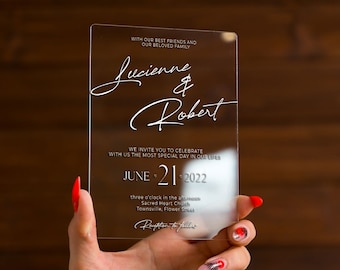 WITH OUR BEST FRIENDS AND
OUR BELOVED FAMILY
Lucienne
&
Robert
WE INVITE YOU TO CELEBRATE
WITH US THE MOST SPECIAL DAY IN OUR LIVES
JUNE 21 2022
three o'clock in the afternoon
Sacred Heart Church
Townsville, Flower Street
Reception to follow